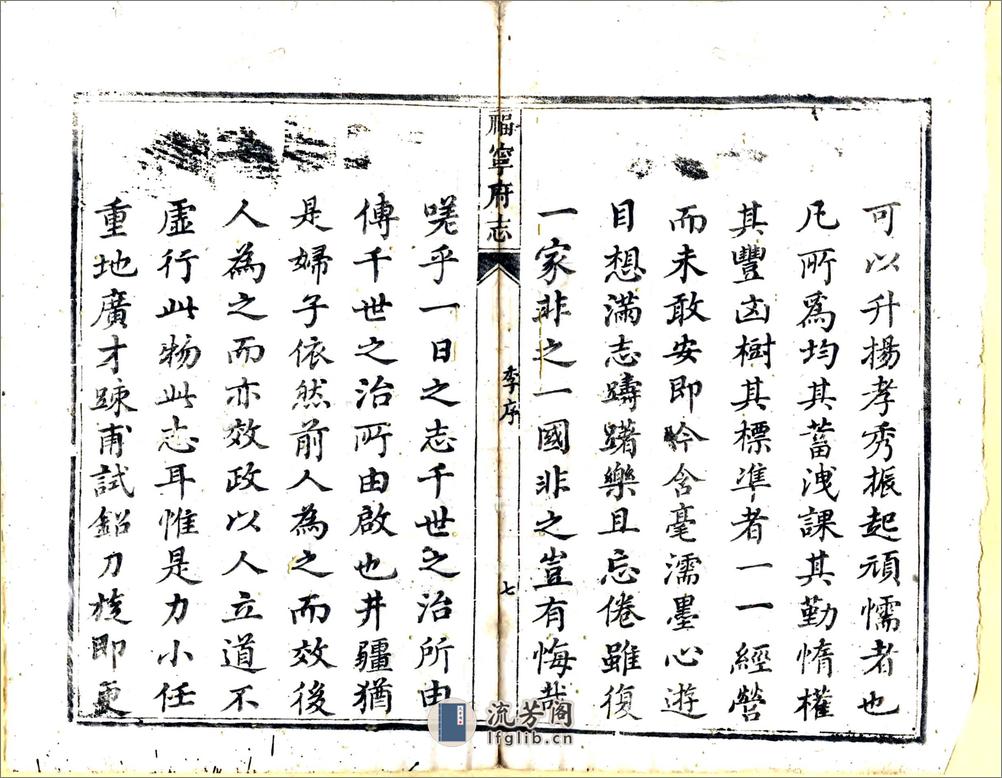 可以升揚孝秀振起頑懦者也
凡所爲均其蓄洩課其勤惰權
其豐凶樹其標準者一一經營
而未敢安即今含毫濡墨心遊
目想滿志躊躇樂且忘倦雖復
一家非之一國非之豈有悔哉
福寧府志
李序
七
嗟乎一日之志千世之治所由
傳千世之治所由啟也井疆猶
是婦子依然前人為之而效後
人為之而亦效政以人立道不
虛行此物此志耳惟是力小任
重地廣才疎甫試鉛刀旋即更
流芳阁
lfglib.cn